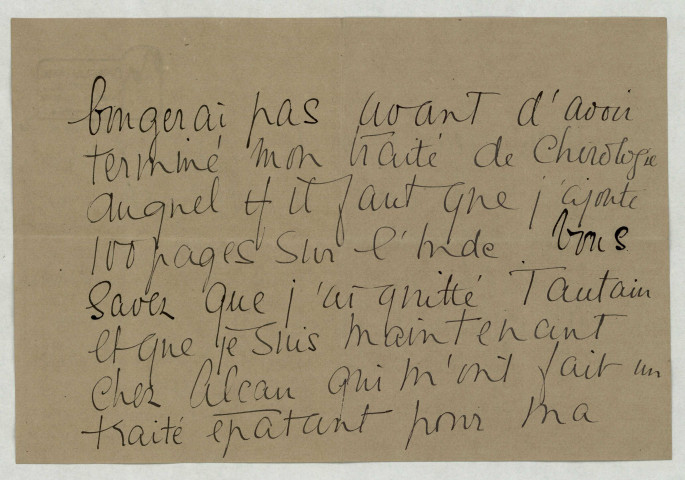 bougerai pas avant d'avoir
terminé mon traité de Chirologie
auquel il faut que j'ajoute
100 pages sur l'Inde. Vous
savez que j'ai quitté Tautain
et que je suis maintenant
chez Alcan qui m'ont fait un
traité epatant pour ma